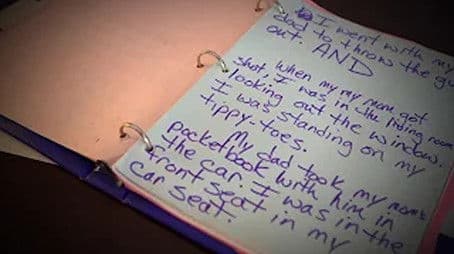 I went with my
dad to throw the gu
out. AND
when my my mom got
shot, I was in the living room
looking out the window.
I was standing on my
tippy-toes.
My dad took my mom's
pocketbook with him in
the car. I was in the
front seat in my
car seat.